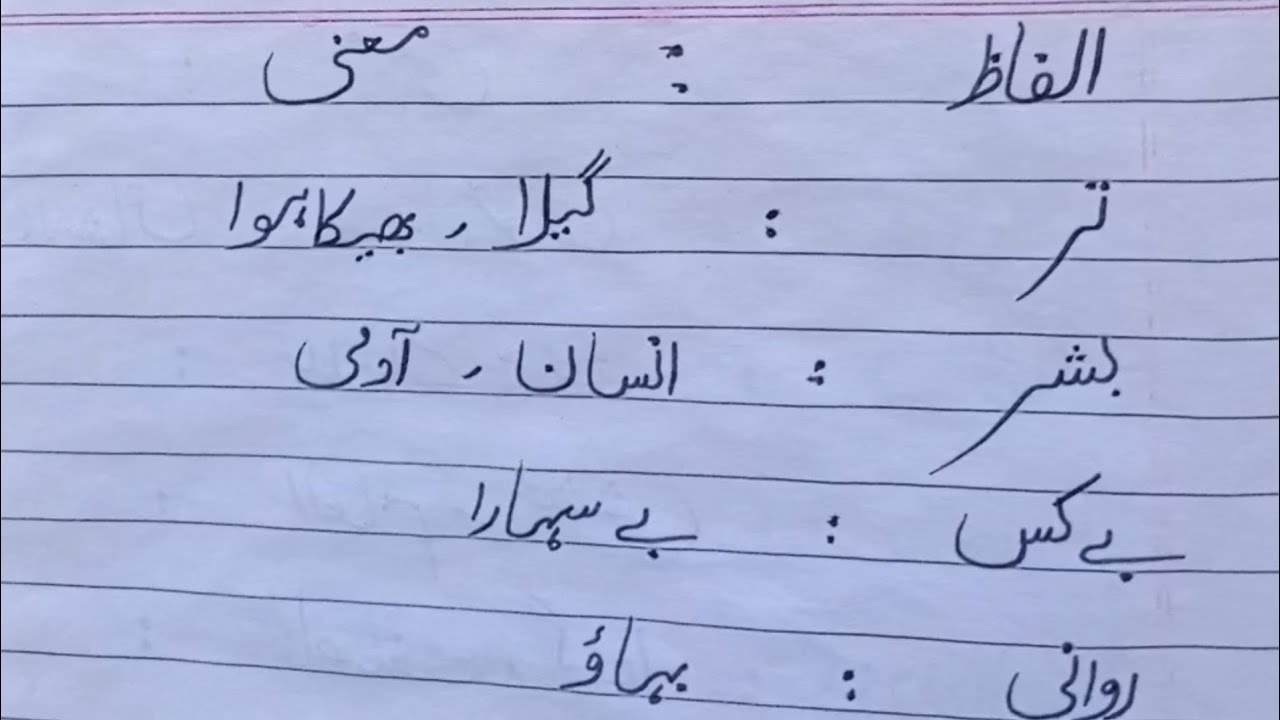 الفاظ : معنی
تر : گیلا ، بھیگا ہوا
بشر : انسان ، آدمی
بے کس : بے سہارا
روانی : بہاؤ